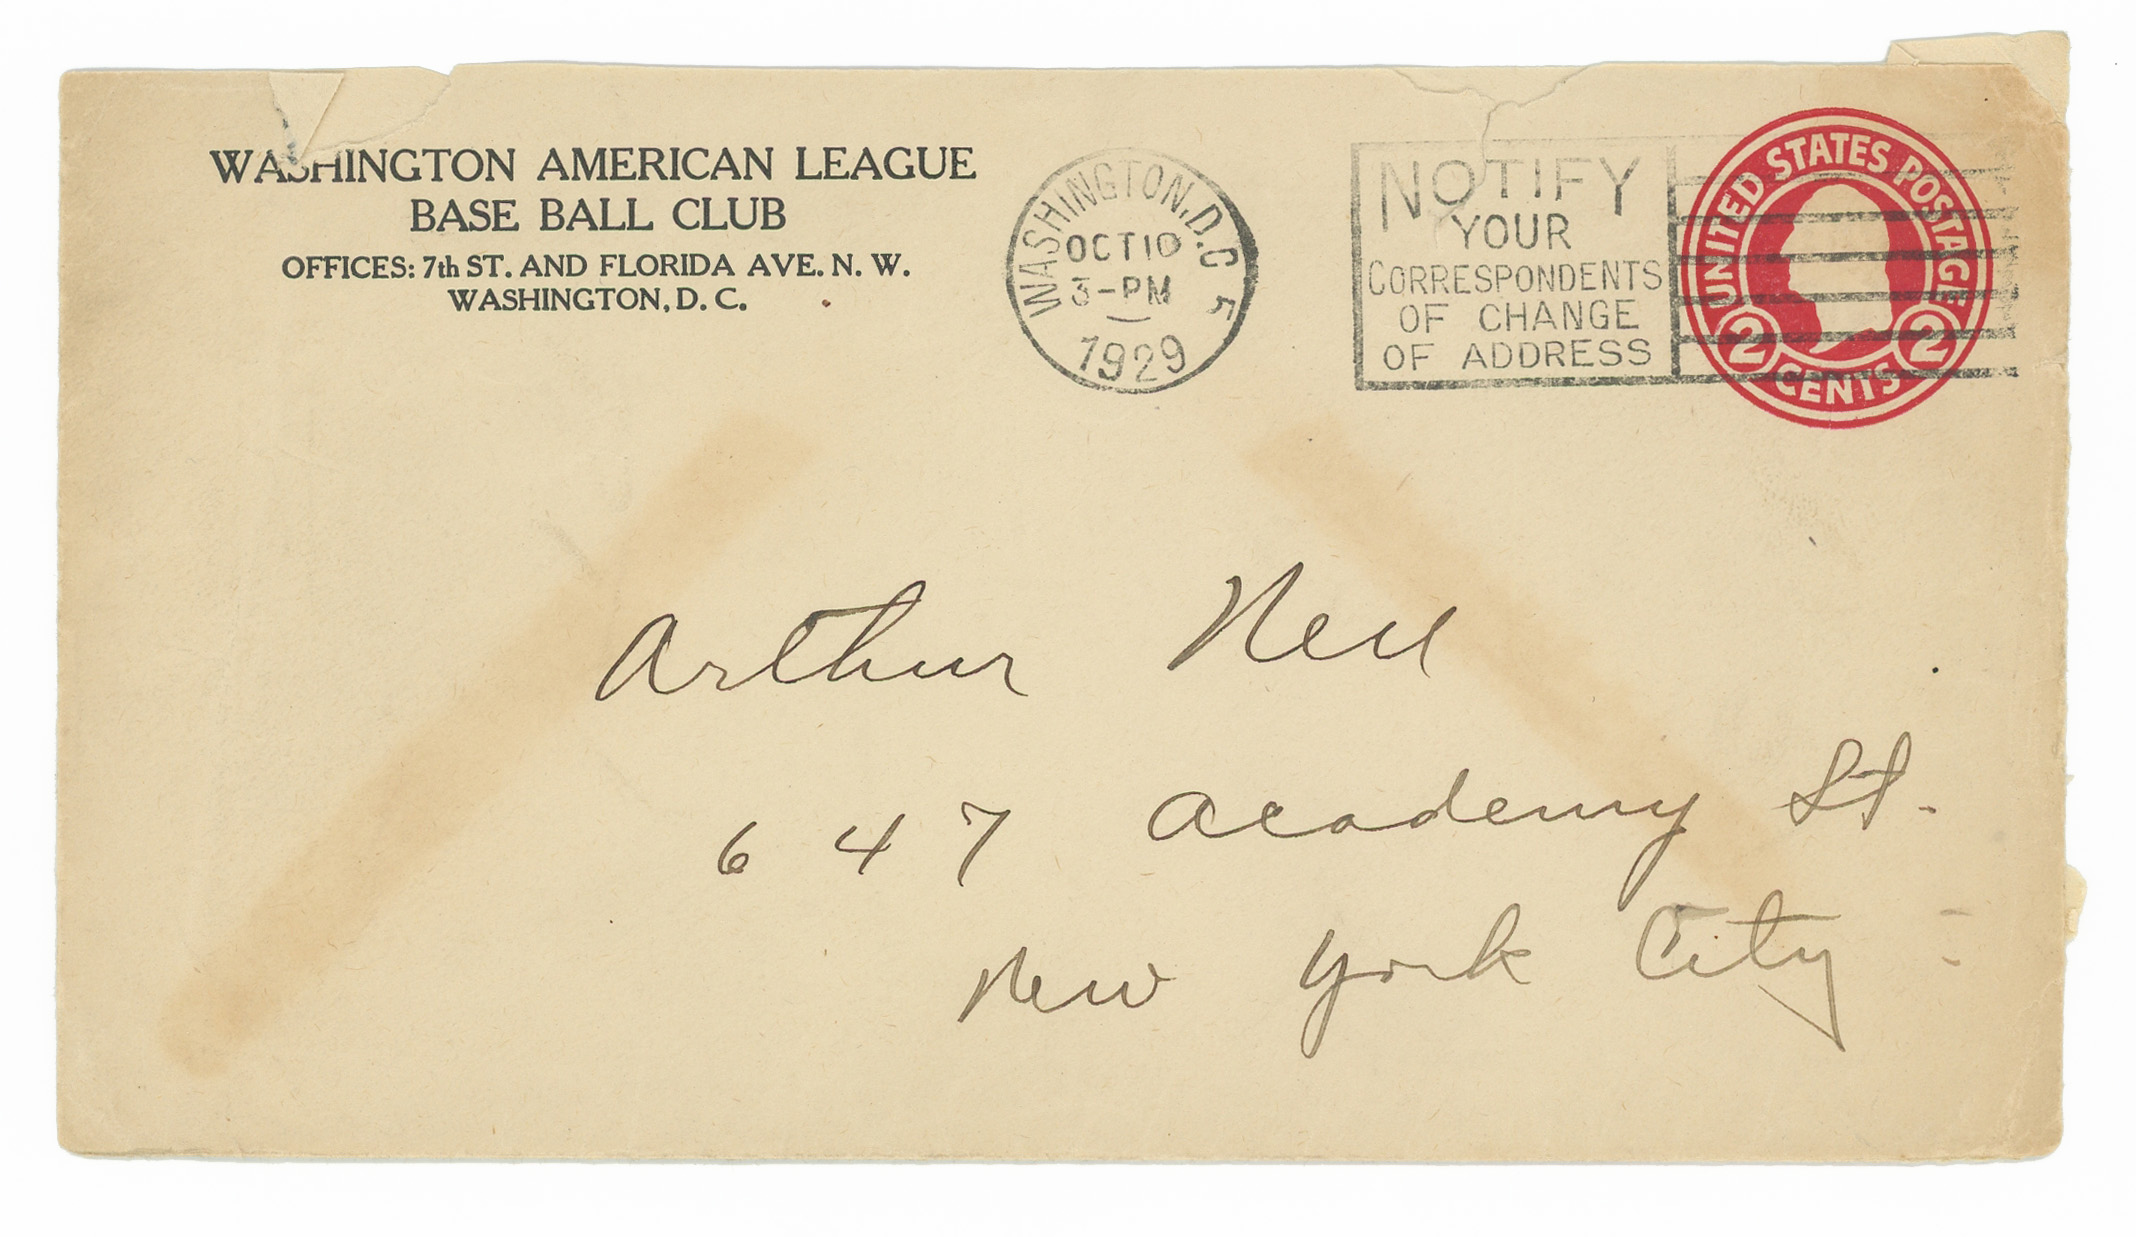 WASHINGTON AMERICAN LEAGUE
BASE BALL CLUB
OFFICES: 7th ST. AND FLORIDA AVE. N. W.
WASHINGTON, D. C.
WASHINGTON, D.C. 5
OCT 10
3-PM
1929
NOTIFY
YOUR
CORRESPONDENTS
OF CHANGE
OF ADDRESS
UNITED STATES POSTAGE
2 2
CENTS
Arthur
647 Academy St.
New York City